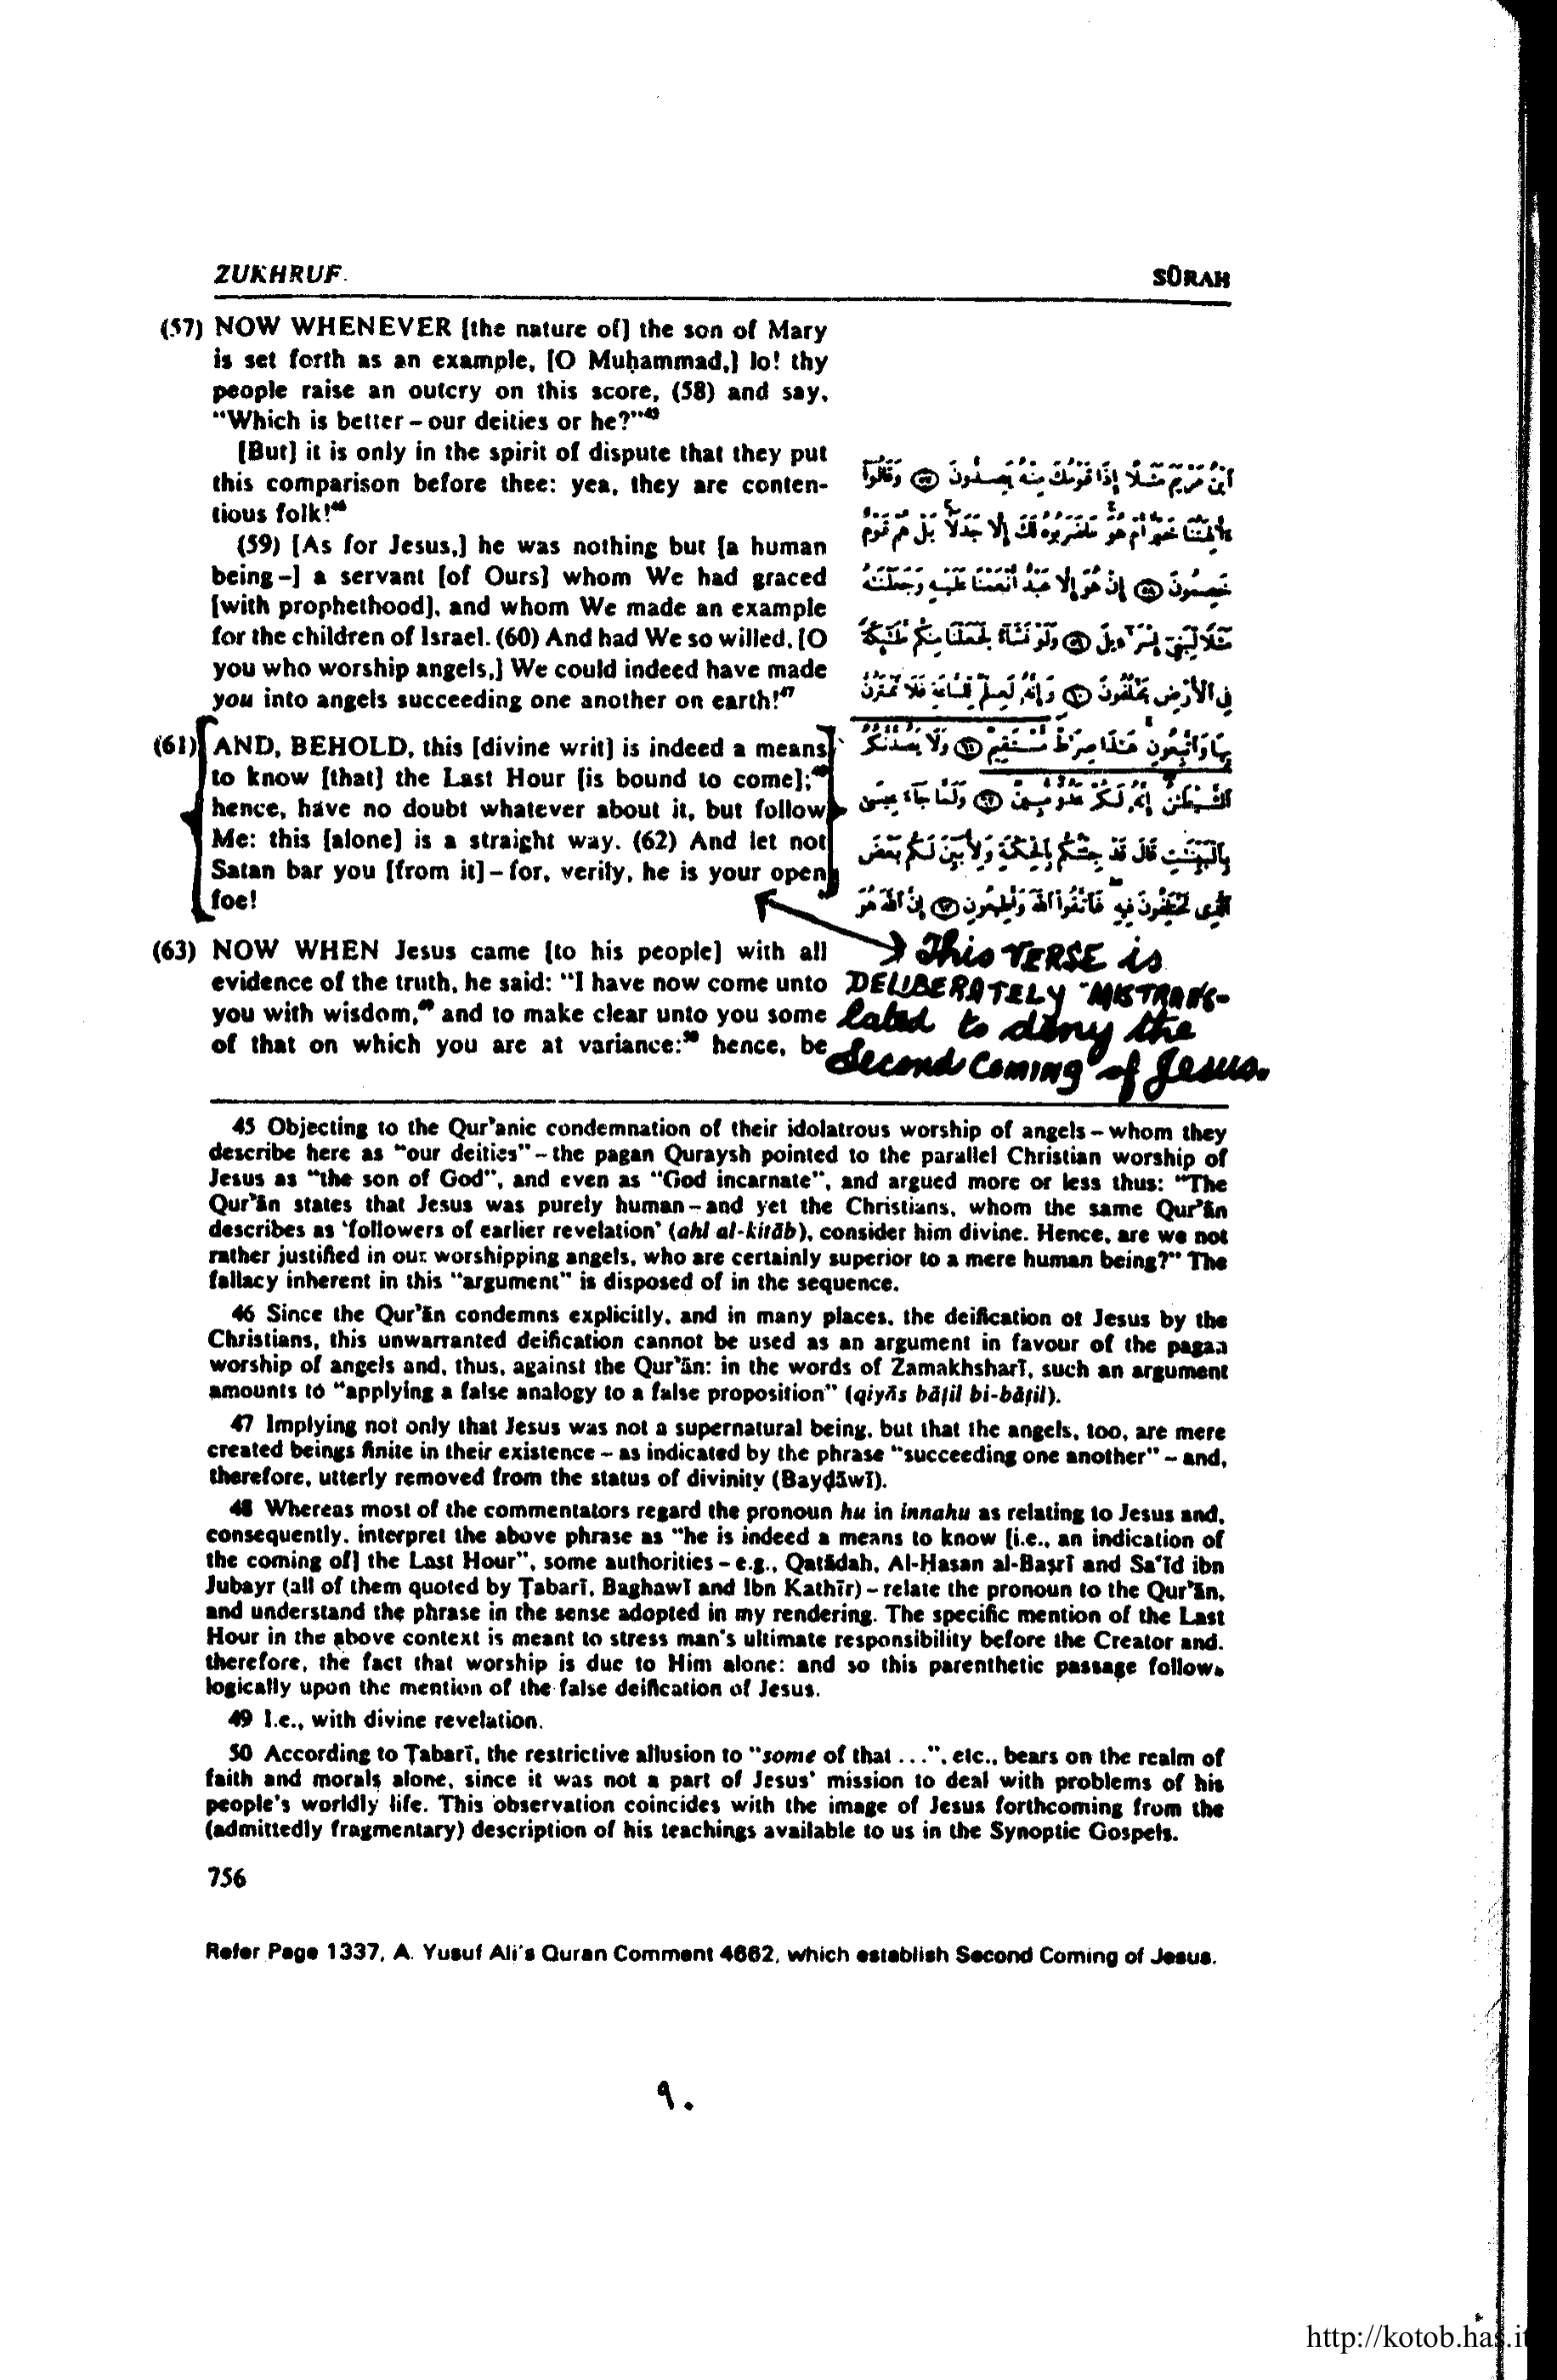 ZUKHRUF.
SŪRAH
(57) NOW WHENEVER [the nature of] the son of Mary
is set forth as an example, [O Muḥammad,] lo! thy
people raise an outcry on this score, (58) and say,
"Which is better – our deities or he?"⁴⁵
[But] it is only in the spirit of dispute that they put
this comparison before thee: yea, they are conten-
tious folk!⁴⁶
(59) [As for Jesus,] he was nothing but [a human
being –] a servant [of Ours] whom We had graced
[with prophethood], and whom We made an example
for the children of Israel. (60) And had We so willed, [O
you who worship angels,] We could indeed have made
you into angels succeeding one another on earth!⁴⁷
(61) AND, BEHOLD, this [divine writ] is indeed a means
to know [that] the Last Hour [is bound to come];⁴⁸
hence, have no doubt whatever about it, but follow
Me: this [alone] is a straight way. (62) And let not
Satan bar you [from it] – for, verily, he is your open
foe!
(63) NOW WHEN Jesus came [to his people] with all
evidence of the truth, he said: "I have now come unto
you with wisdom,⁴⁹ and to make clear unto you some
of that on which you are at variance:⁵⁰ hence, be
ابْنُ مَرْيَمَ مَثَلًا إِذَا قَوْمُكَ مِنْهُ يَصِدُّونَ ٥٧ وَقَالُوٓا
ءَأَٰلِهَتُنَا خَيْرٌ أَمْ هُوَ مَا ضَرَبُوهُ لَكَ إِلَّا جَدَلًا بَلْ هُمْ قَوْمٌ
خَصِمُونَ ٥٨ إِنْ هُوَ إِلَّا عَبْدٌ أَنْعَمْنَا عَلَيْهِ وَجَعَلْنَٰهُ
مَثَلًا لِّبَنِىٓ إِسْرَٰٓءِيلَ ٥٩ وَلَوْ نَشَآءُ لَجَعَلْنَا مِنكُم مَّلَٰٓئِكَةً
فِى الْأَرْضِ يَخْلُفُونَ ٦٠ وَإِنَّهُۥ لَعِلْمٌ لِّلسَّاعَةِ فَلَا تَمْتَرُنَّ
بِهَا وَاتَّبِعُونِ هَٰذَا صِرَٰطٌ مُّسْتَقِيمٌ ٦١ وَلَا يَصُدَّنَّكُمُ
الشَّيْطَٰنُ إِنَّهُۥ لَكُمْ عَدُوٌّ مُّبِينٌ ٦٢ وَلَمَّا جَآءَ عِيسَىٰ
بِالْبَيِّنَٰتِ قَالَ قَدْ جِئْتُكُم بِالْحِكْمَةِ وَلِأُبَيِّنَ لَكُم بَعْضَ
الَّذِى تَخْتَلِفُونَ فِيهِ فَاتَّقُوا اللَّهَ وَأَطِيعُونِ ٦٣ إِنَّ اللَّهَ هُوَ
This VERSE is
DELIBERATELY "MISTRANS-
lated to deny the
Second Coming" of Jesus.
45 Objecting to the Qur'anic condemnation of their idolatrous worship of angels – whom they
describe here as "our deities" – the pagan Quraysh pointed to the parallel Christian worship of
Jesus as "the son of God", and even as "God incarnate", and argued more or less thus: "The
Qur'ān states that Jesus was purely human – and yet the Christians, whom the same Qur'ān
describes as 'followers of earlier revelation' (ahl al-kitāb), consider him divine. Hence, are we not
rather justified in our worshipping angels, who are certainly superior to a mere human being?" The
fallacy inherent in this "argument" is disposed of in the sequence.
46 Since the Qur'ān condemns explicitly, and in many places, the deification of Jesus by the
Christians, this unwarranted deification cannot be used as an argument in favour of the pagan
worship of angels and, thus, against the Qur'ān: in the words of Zamakhsharī, such an argument
amounts to "applying a false analogy to a false proposition" (qiyās bāṭil bi-bāṭil).
47 Implying not only that Jesus was not a supernatural being, but that the angels, too, are mere
created beings finite in their existence – as indicated by the phrase "succeeding one another" – and,
therefore, utterly removed from the status of divinity (Bayḍāwī).
48 Whereas most of the commentators regard the pronoun hu in innahu as relating to Jesus and,
consequently, interpret the above phrase as "he is indeed a means to know [i.e., an indication of
the coming of] the Last Hour", some authorities – e.g., Qatādah, Al-Ḥasan al-Baṣrī and Sa'īd ibn
Jubayr (all of them quoted by Ṭabarī, Baghawī and Ibn Kathīr) – relate the pronoun to the Qur'ān,
and understand the phrase in the sense adopted in my rendering. The specific mention of the Last
Hour in the above context is meant to stress man's ultimate responsibility before the Creator and,
therefore, the fact that worship is due to Him alone: and so this parenthetic passage follows
logically upon the mention of the false deification of Jesus.
49 I.e., with divine revelation.
50 According to Ṭabarī, the restrictive allusion to "some of that . . .", etc., bears on the realm of
faith and morals alone, since it was not a part of Jesus' mission to deal with problems of his
people's worldly life. This observation coincides with the image of Jesus forthcoming from the
(admittedly fragmentary) description of his teachings available to us in the Synoptic Gospels.
756
Refer Page 1337, A. Yusuf Ali's Quran Comment 4662, which establish Second Coming of Jesus.
9.
http://kotob.has.it